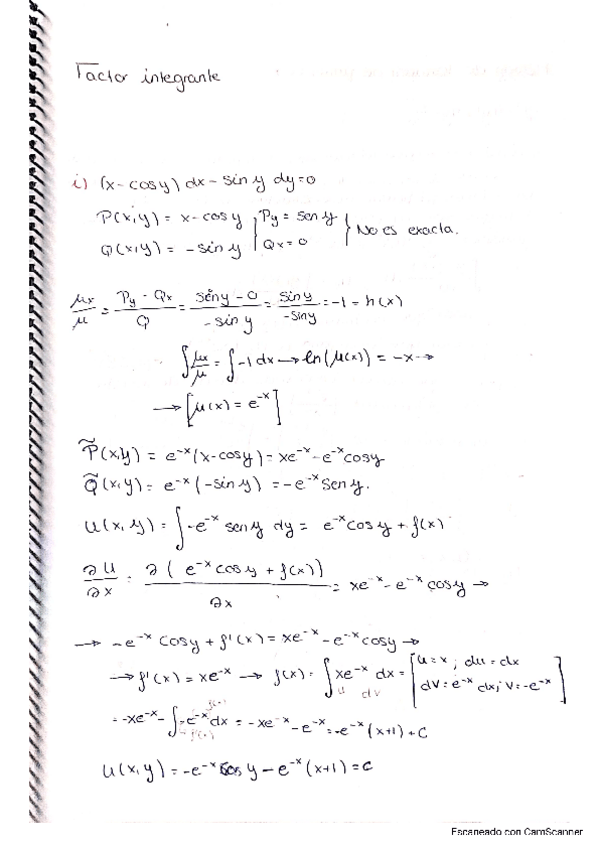 Factor integrante
i) (x-cosy) dx - siny dy=0
P(x,y) = x-cosy } Py = seny } No es exacta.
Q(x,y) = -siny } Qx = 0
μx/μ = (Py - Qx)/Q = (seny - 0)/(-siny) = siny/(-siny) = -1 = h(x)
∫ μx/μ = ∫ -1 dx → ln(μ(x)) = -x →
→ [μ(x) = e^-x]
P̃(x,y) = e^-x (x-cosy) = xe^-x - e^-x cosy
Q̃(x,y) = e^-x (-siny) = -e^-x seny.
U(x,y) = ∫ -e^-x seny dy = e^-x cosy + f(x)
∂U/∂x = ∂(e^-x cosy + f(x))/∂x = xe^-x - e^-x cosy →
→ -e^-x cosy + f'(x) = xe^-x - e^-x cosy →
→ f'(x) = xe^-x → f(x) = ∫ xe^-x dx = [u=x; du=dx
u dv dv=e^-x dx; v=-e^-x]
= -xe^-x - ∫ -e^-x dx = -xe^-x - e^-x = -e^-x (x+1) + C
U(x,y) = -e^-x cosy - e^-x (x+1) = C
Escaneado con CamScanner